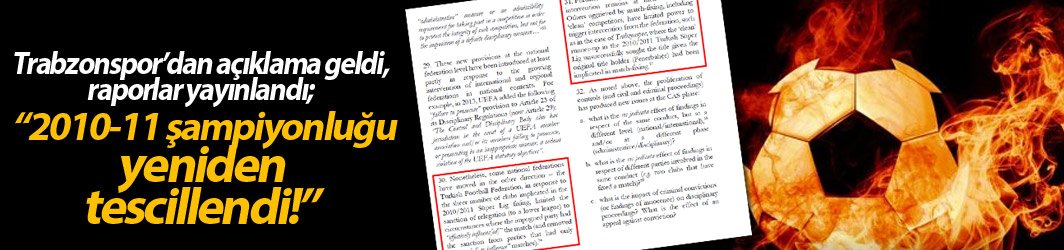 Trabzonspor'dan açıklama geldi,
raporlar yayınlandı;
“2010-11 şampiyonluğu
yeniden
tescillendi!”
"administrative" measure or an admissibility
requirement for taking part in a competition in order
to protect the integrity of such competition, but not for
the imposition of a definite disciplinary measure…"
29. These new provisions at the national
federation level have been introduced at least
partly in response to the growing
intervention of international and regional
federations in national contexts. For
example, in 2013, UEFA added the following
"failure to prosecute" provision to Article 23 of
its Disciplinary Regulations (now Article 29):
"The Control and Disciplinary Body also has
jurisdiction in the event of a UEFA member
association and/or its members failing to prosecute,
or prosecuting in an inappropriate manner, a serious
violation of the UEFA statutory objectives".
30. Nonetheless, some national federations
have moved in the other direction – the
Turkish Football Federation, in response to
the sheer number of clubs implicated in the
2010/2011 Süper Lig fixing, limited the
sanction of relegation (to a lower league) to
circumstances where the impugned party had
"effectively influenced" the match (and removed
the sanction from parties that had only
matches).
31.
intervention reasons at
Others aggrieved by match-fixing, including
'clean' competitors, have limited power to
trigger intervention from the federation, such
as in the case of Trabzonspor, where the 'clean'
runner-up in the 2010/2011 Turkish Super
Lig unsuccessfully sought the title given the
original title holder (Fenerbahce) had been
implicated in match-fixing.
32. As noted above, the proliferation of
controls (and civil and criminal proceedings)
has produced new issues at the CAS phase:
a. what is the res judicata effect of findings in
respect of the same conduct, but in a
different level (national/international),
and/or a different phase
(administrative/disciplinary)?
b. what is the res judicata effect of findings in
respect of different parties involved in the
same conduct (e.g. two clubs that have
fixed a match)?
c. what is the impact of criminal convictions
(or findings of innocence) on disciplinary
proceedings? What is the effect of an
appeal against conviction?